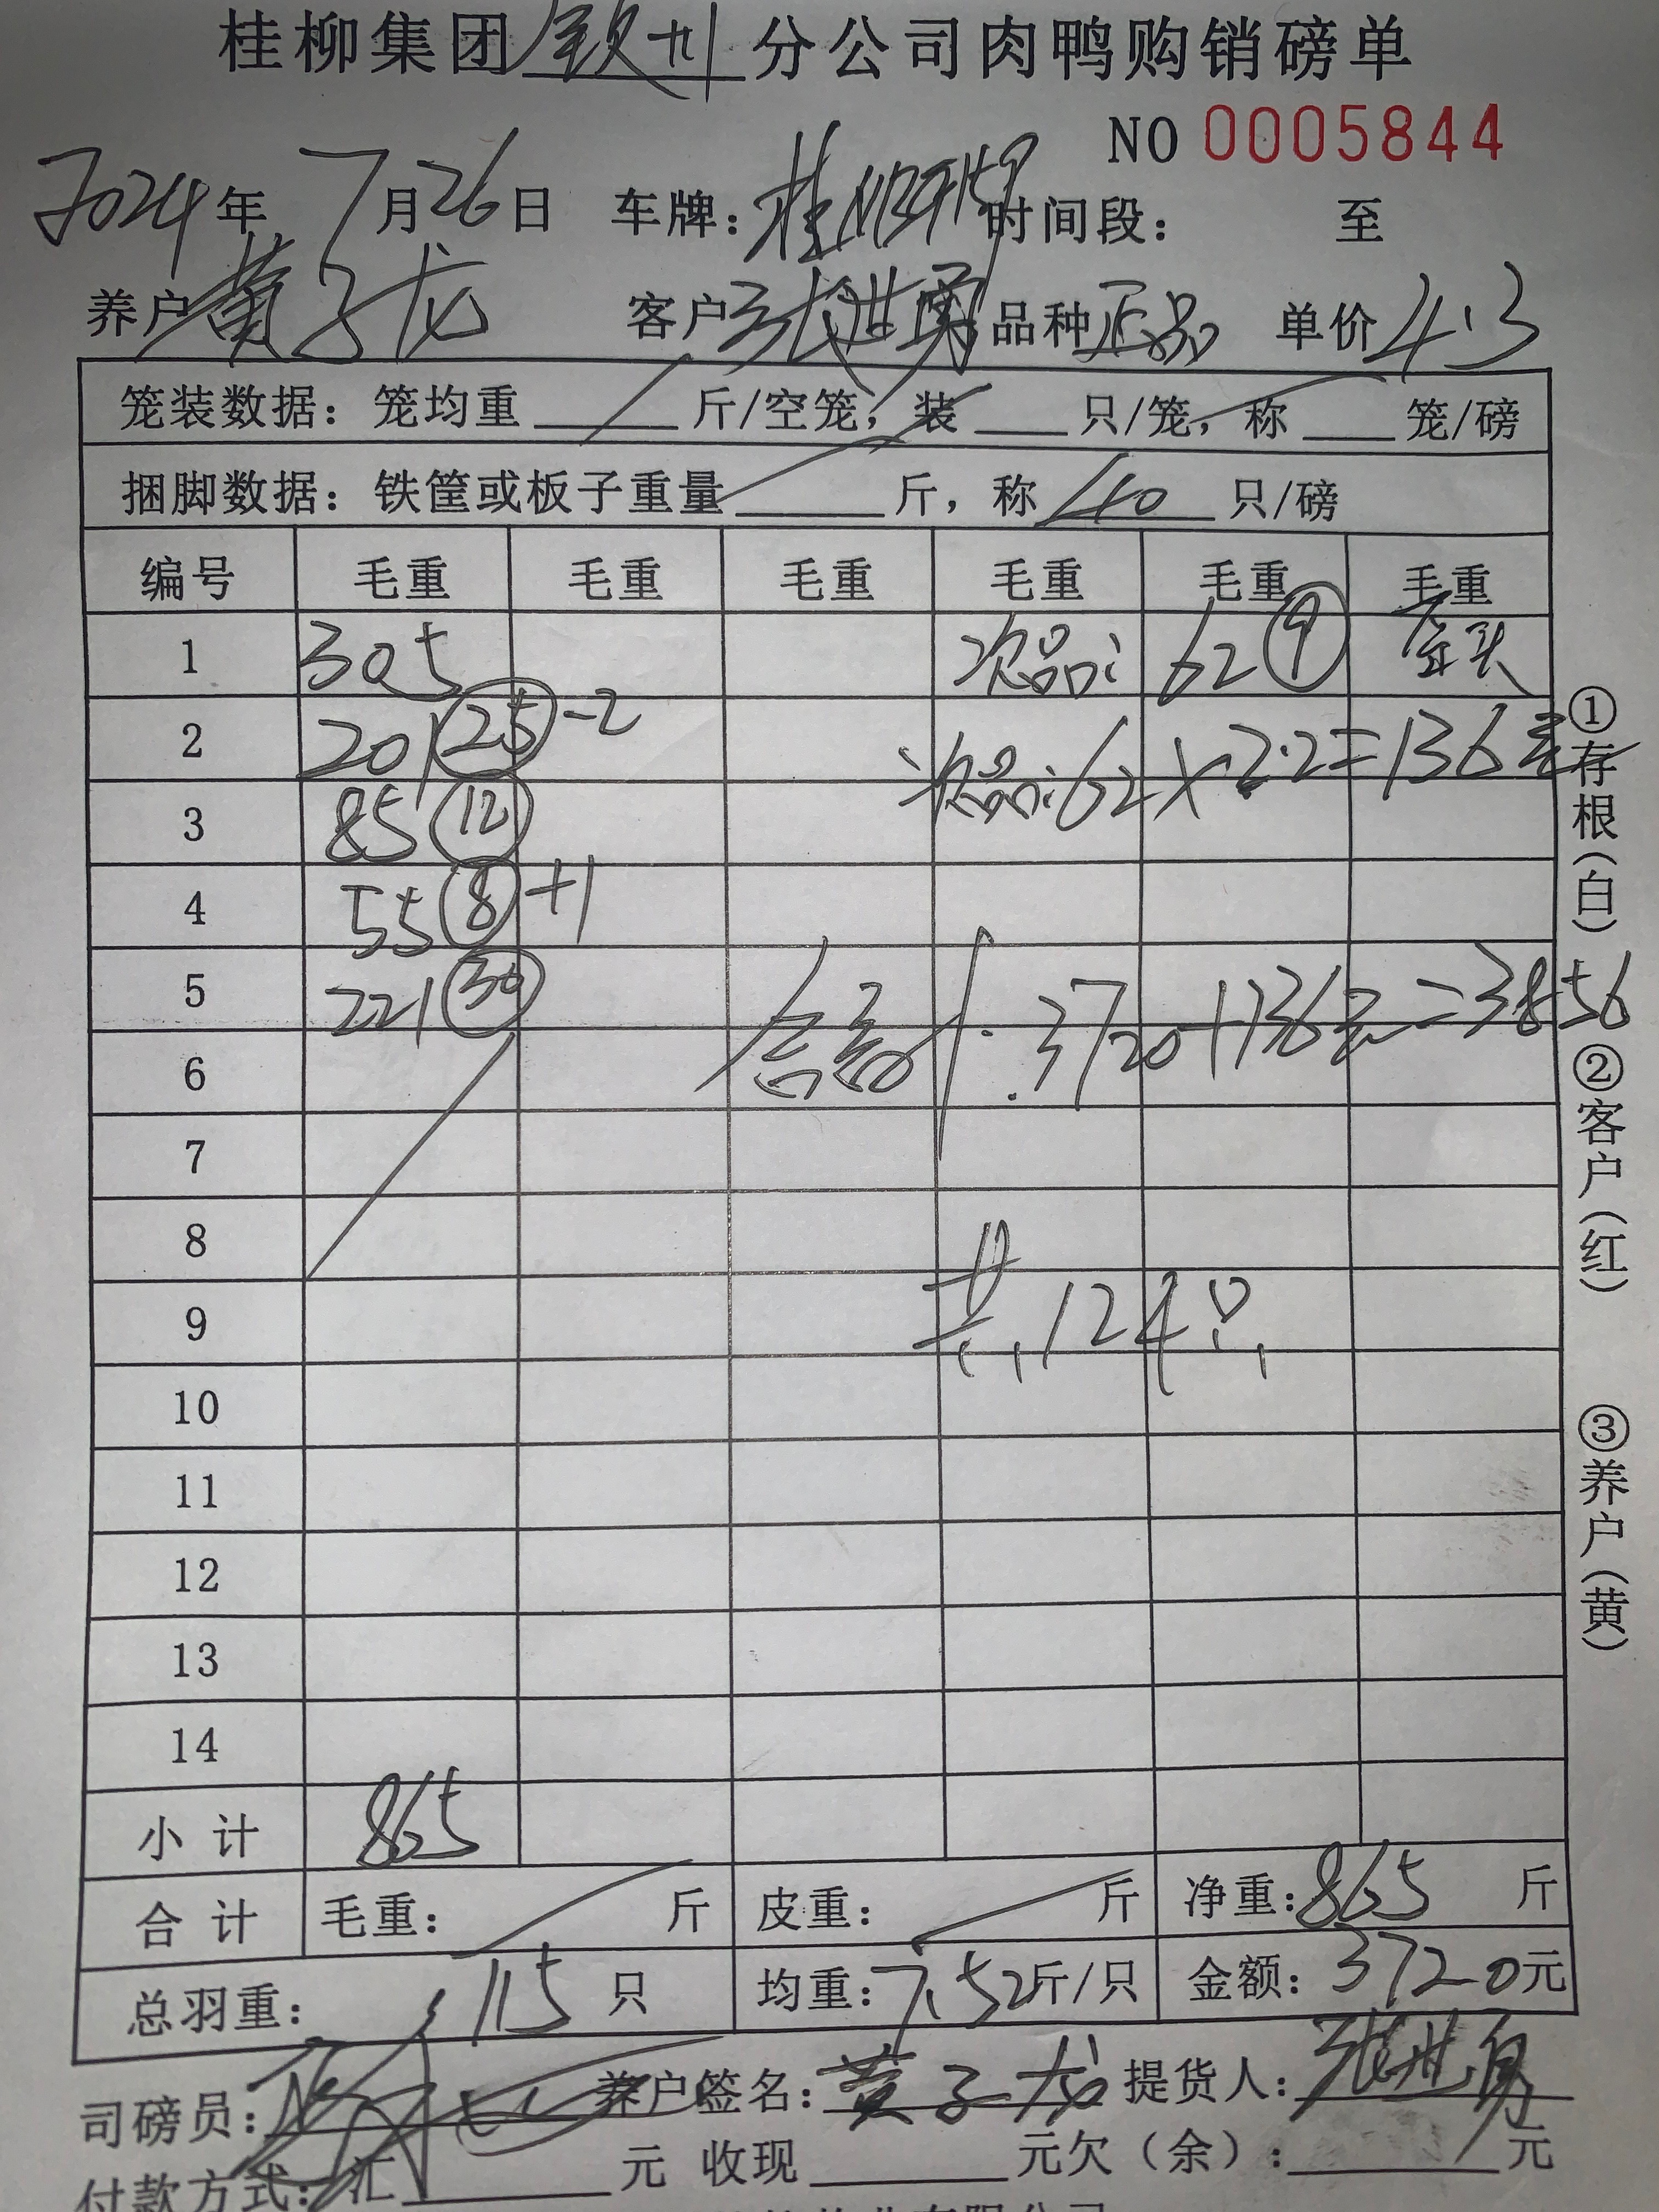 桂柳集团钦州分公司肉鸭购销磅单
NO 0005844
2024年7月26日 车牌:桂 时间段: 至
养户黄子龙 客户张世勇 品种正品 单价4.3
笼装数据: 笼均重 斤/空笼, 装 只/笼, 称 笼/磅
捆脚数据: 铁筐或板子重量 斤, 称 40 只/磅
编号 毛重 毛重 毛重 毛重 毛重 毛重
1 305 次品: 62 9
2 201 25 -2 次品: 62×2.2=136元
3 85 12
4 55 8 +1
5 221 30 合计: 3720+136元=3856
6
7
8
9 共: 124只
10
11
12
13
14
小计 865
合计 毛重: 斤 皮重: 斤 净重: 865 斤
总羽重: 115 只 均重: 7.52斤/只 金额: 3720元
司磅员: 养户签名: 黄子龙 提货人: 张世勇
付款方式: 汇 元 收现 元欠(余): 元
①存根(白) ②客户(红) ③养户(黄)